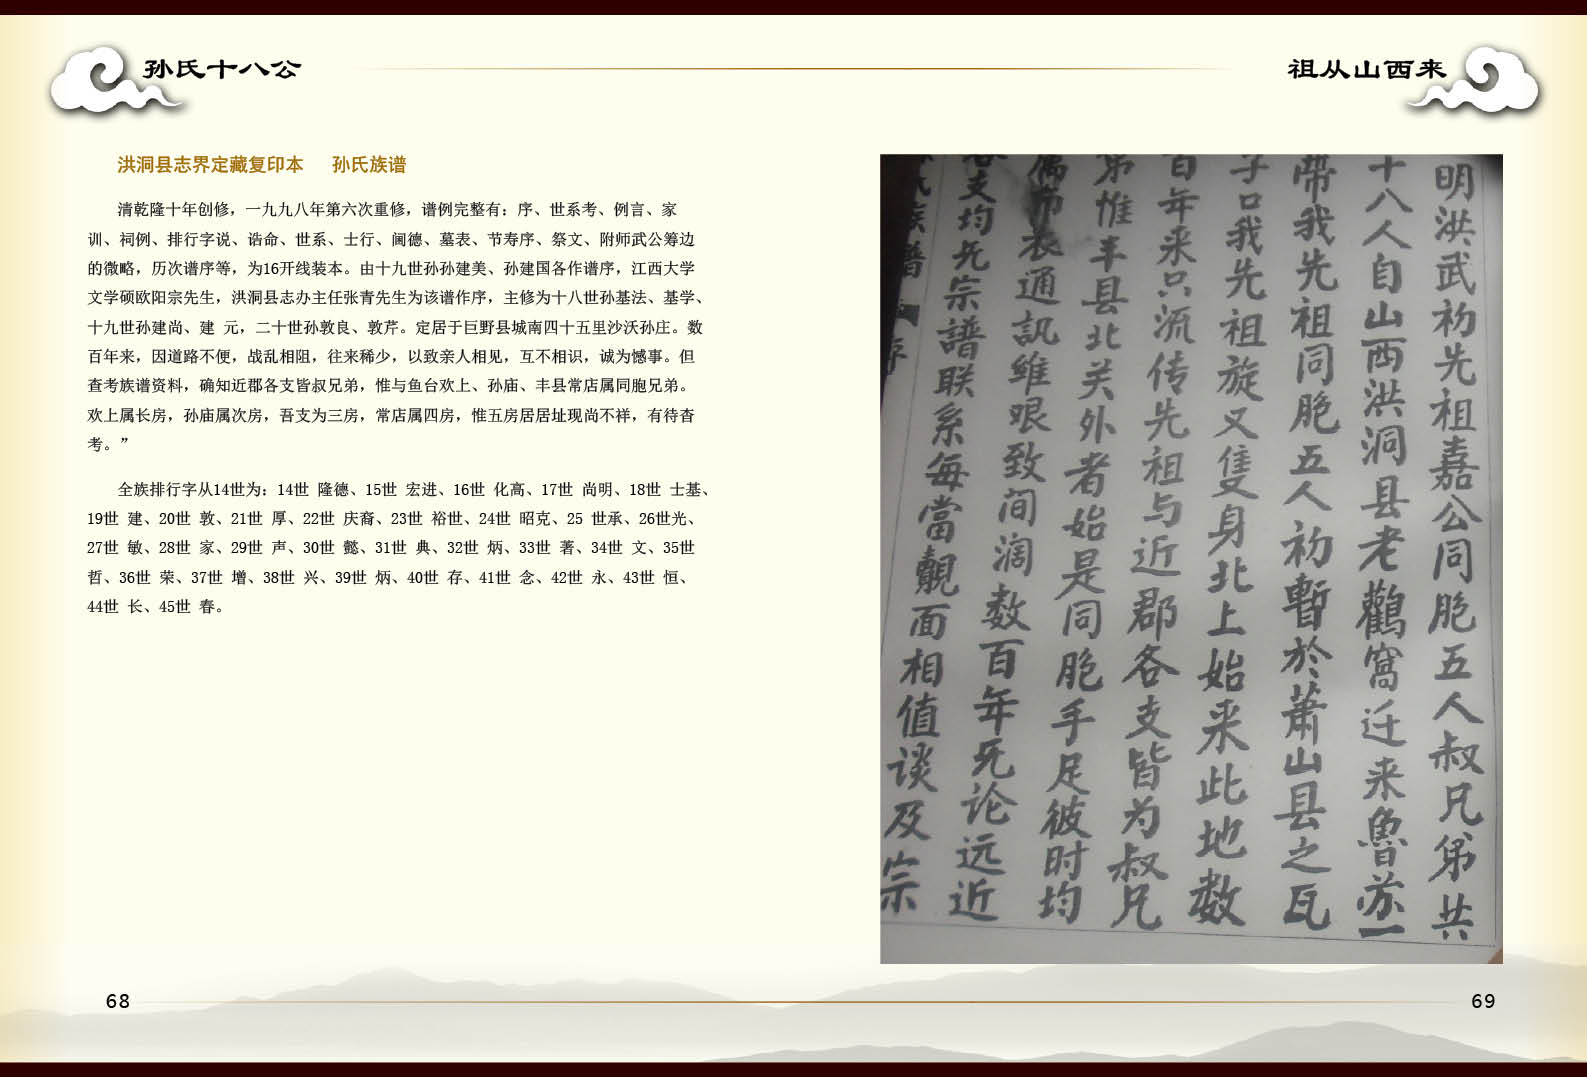 孙氏十八公
祖从山西来
洪洞县志界定藏复印本 孙氏族谱
清乾隆十年创修，一九九八年第六次重修，谱例完整有：序、世系考、例言、家
训、祠例、排行字说、诰命、世系、士行、阃德、墓表、节寿序、祭文、附师武公筹边
的微略，历次谱序等，为16开线装本。由十九世孙孙建美、孙建国各作谱序，江西大学
文学硕欧阳宗先生，洪洞县志办主任张青先生为该谱作序，主修为十八世孙基法、基学、
十九世孙建尚、建 元，二十世孙敦良、敦芹。定居于巨野县城南四十五里沙沃孙庄。数
百年来，因道路不便，战乱相阻，往来稀少，以致亲人相见，互不相识，诚为憾事。但
查考族谱资料，确知近郡各支皆叔兄弟，惟与鱼台欢上、孙庙、丰县常店属同胞兄弟。
欢上属长房，孙庙属次房，吾支为三房，常店属四房，惟五房居居址现尚不祥，有待杳
考。”
全族排行字从14世为：14世 隆德、15世 宏进、16世 化高、17世 尚明、18世 士基、
19世 建、20世 敦、21世 厚、22世 庆裔、23世 裕世、24世 昭克、25 世承、26世光、
27世 敏、28世 家、29世 声、30世 懿、31世 典、32世 炳、33世 著、34世 文、35世
哲、36世 荣、37世 增、38世 兴、39世 炳、40世 存、41世 念、42世 永、43世 恒、
44世 长、45世 春。
明洪武初先祖嘉公同胞五人叔兄弟共
十八人自山西洪洞县老鸛窩迁来魯苏一
帶我先祖同胞五人初暫於萧山县之瓦
子口我先祖旋又隻身北上始来此地数
百年来只流传先祖与近郡各支皆为叔兄
弟惟丰县北关外者始是同胞手足彼时均
属布衣通訊维艰致间阔数百年无论远近
各支均无宗譜联系每當覿面相值谈及宗
氏族譜
序
68
69